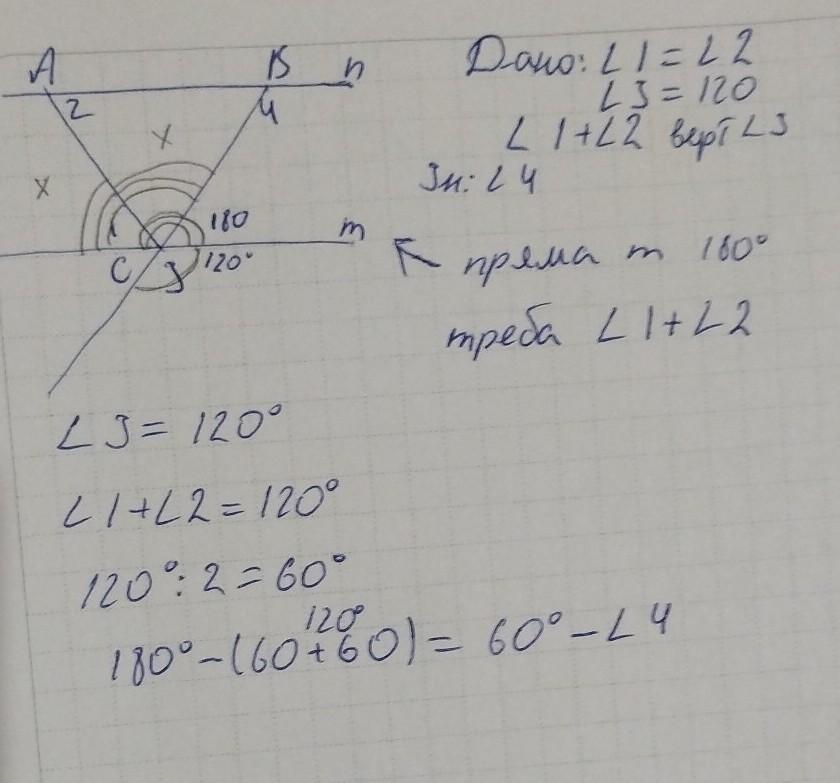 A B n
2 4
x
x
1 180 m
C 3 120°
Дано: ∠1 = ∠2
∠3 = 120
∠1+∠2 верт ∠3
Зн: ∠4
↖ пряма m 180°
треба ∠1+∠2
∠3 = 120°
∠1+∠2 = 120°
120° : 2 = 60°
120°
180° - (60+60) = 60° - ∠4